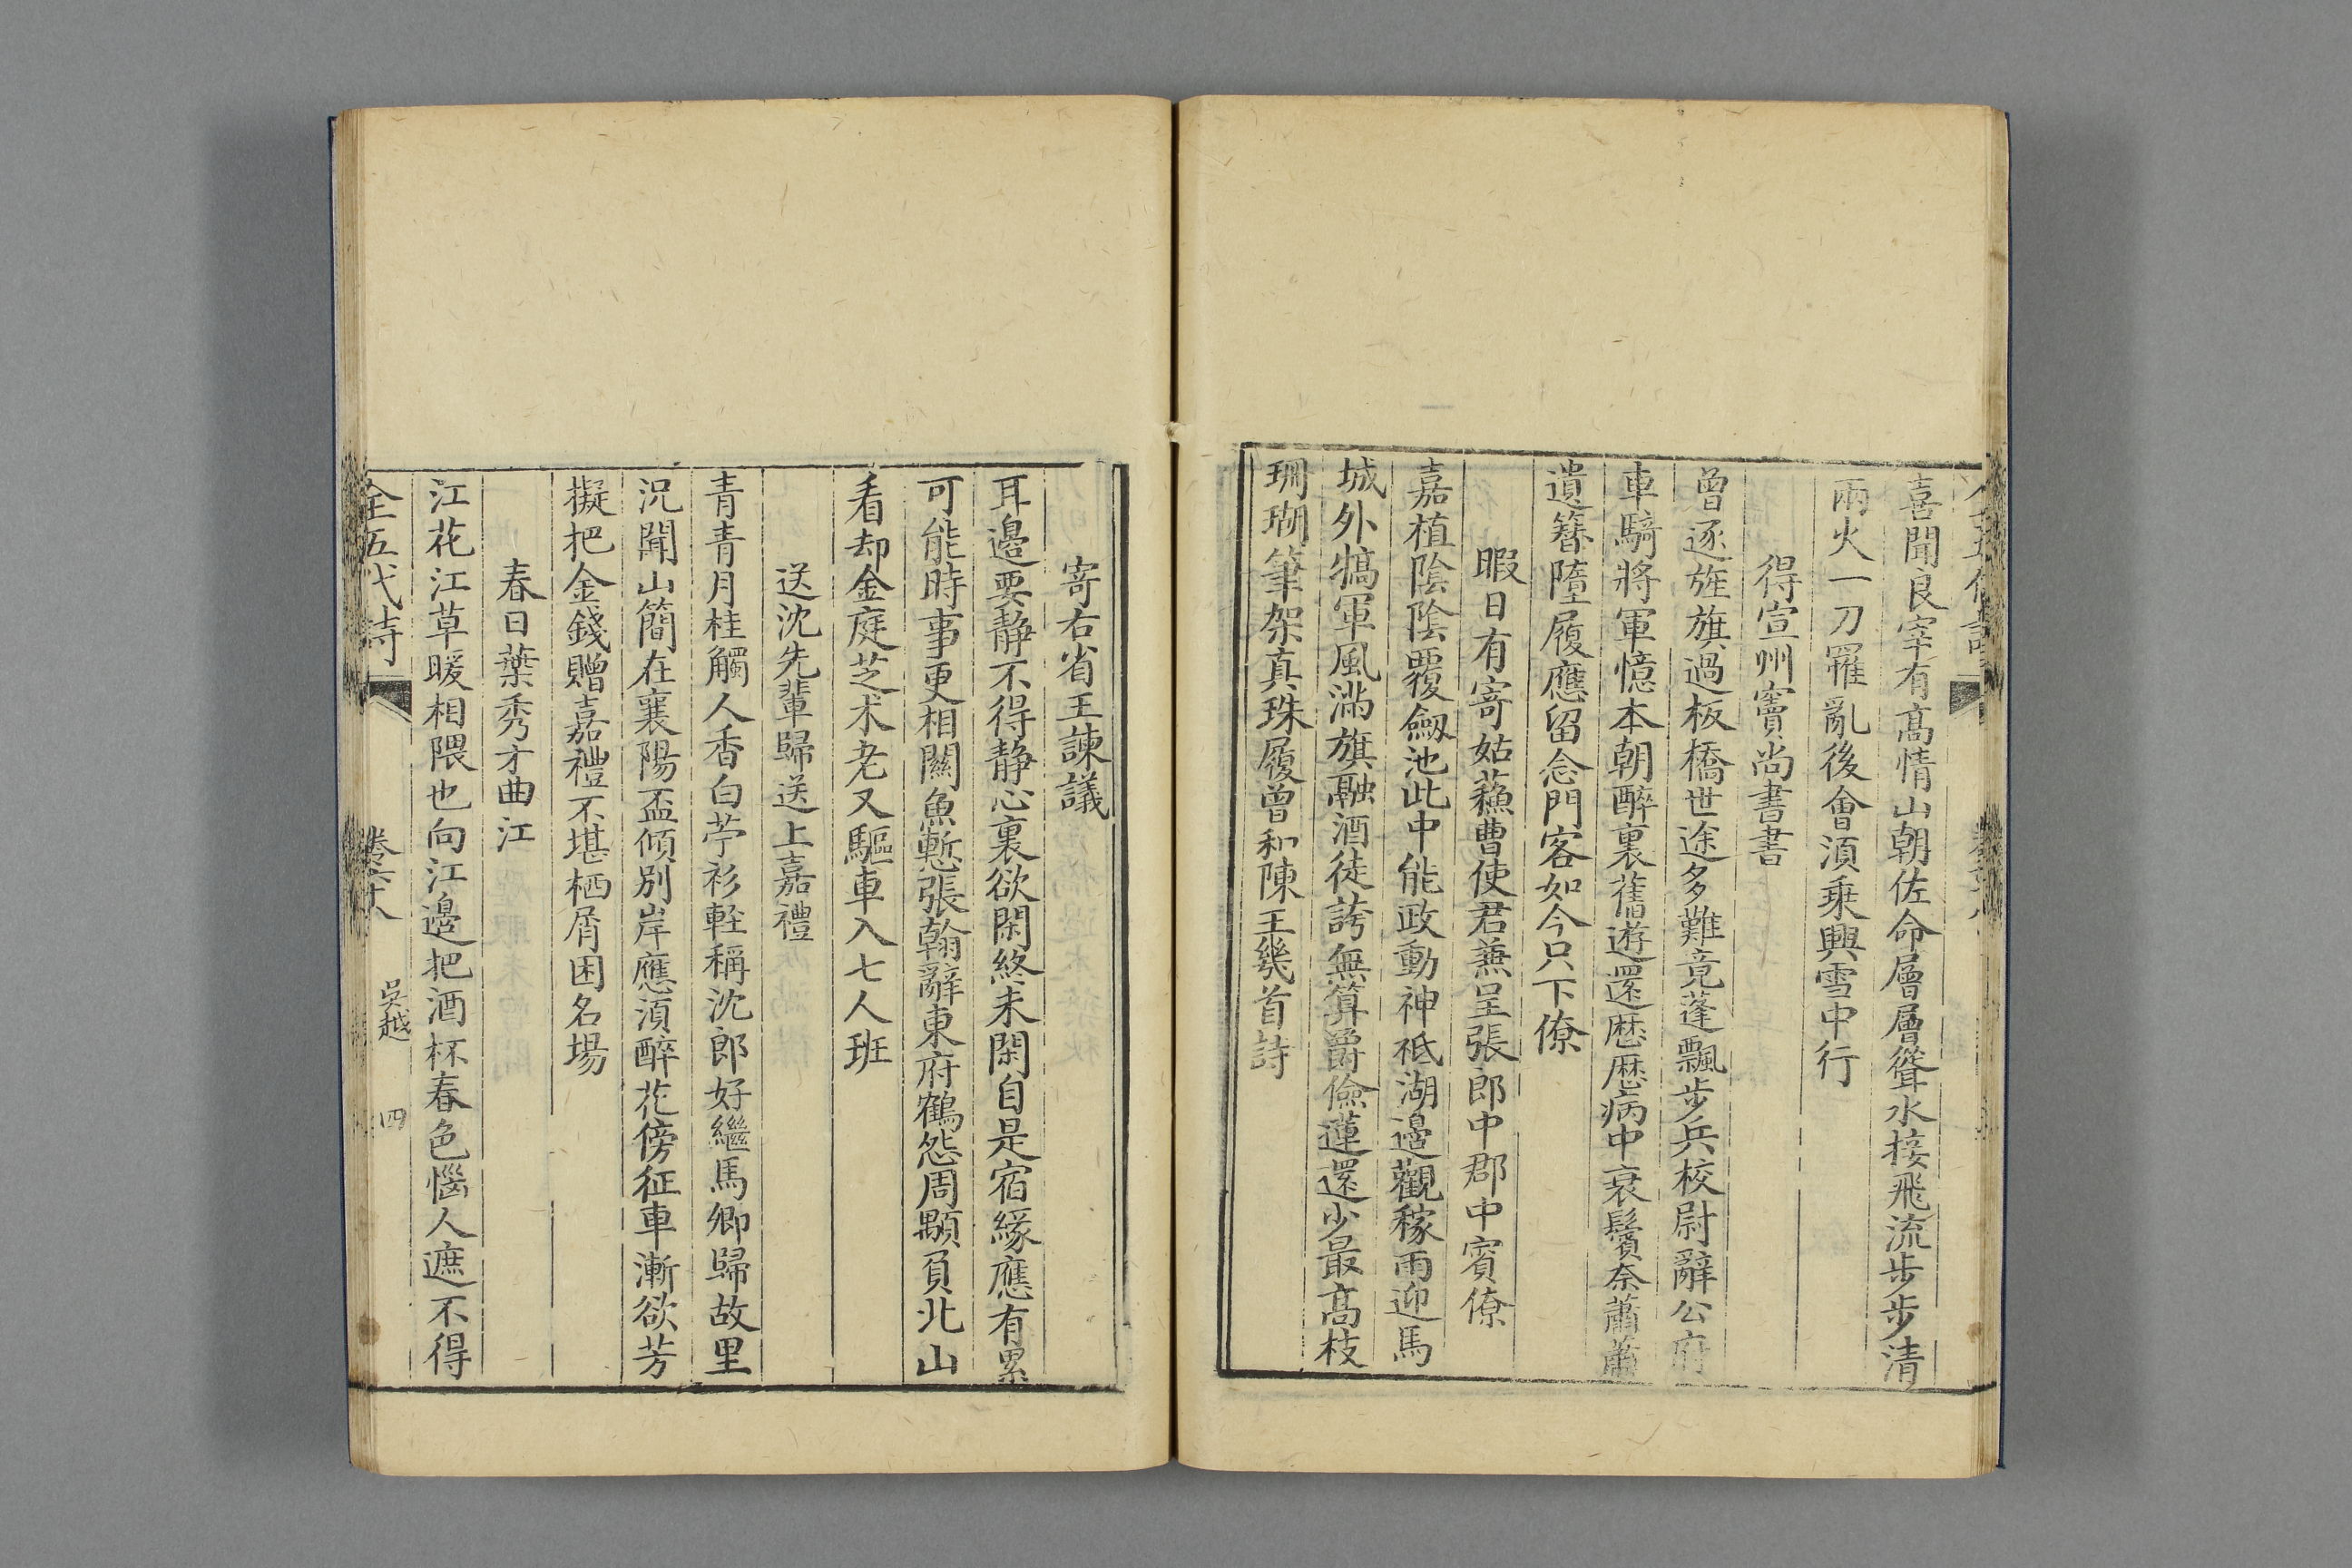 喜聞良宰有髙情山朝佐命層層聳水接飛流步步清
兩火一刀罹亂後會須乗興雪中行
得宣州竇尚書書
曾逐旌旗過板橋世途多難竟蓬飄步兵校尉辭公府
車騎將軍憶本朝醉裏舊遊還歴歴病中衰鬢奈蕭蕭
遺簪墮履應留念門客如今只下僚
暇日有寄姑蘓曹使君兼呈張郎中郡中賓僚
嘉植陰陰覆劒池此中能政動神祗湖邉觀稼雨迎馬
城外犒軍風滿旗融酒徒誇無算爵儉蓮還少最髙枝
珊瑚筆架真珠履曾和陳王幾首詩
寄右省王諫議
耳邉要静不得静心裏欲閑終未閑自是宿緣應有累
可能時事更相關魚慙張翰辭東府鶴怨周顒負北山
看却金庭芝术老又驅車入七人班
送沈先輩歸送上嘉禮
青青月桂觸人香白苧衫輕稱沈郎好繼馬卿歸故里
況聞山簡在襄陽盃傾別岸應須醉花傍征車漸欲芳
擬把金錢贈嘉禮不堪栖屑困名場
春日葉秀才曲江
江花江草暖相隈也向江邉把酒杯春色惱人遮不得
全五代詩
卷六十八
吳越
四